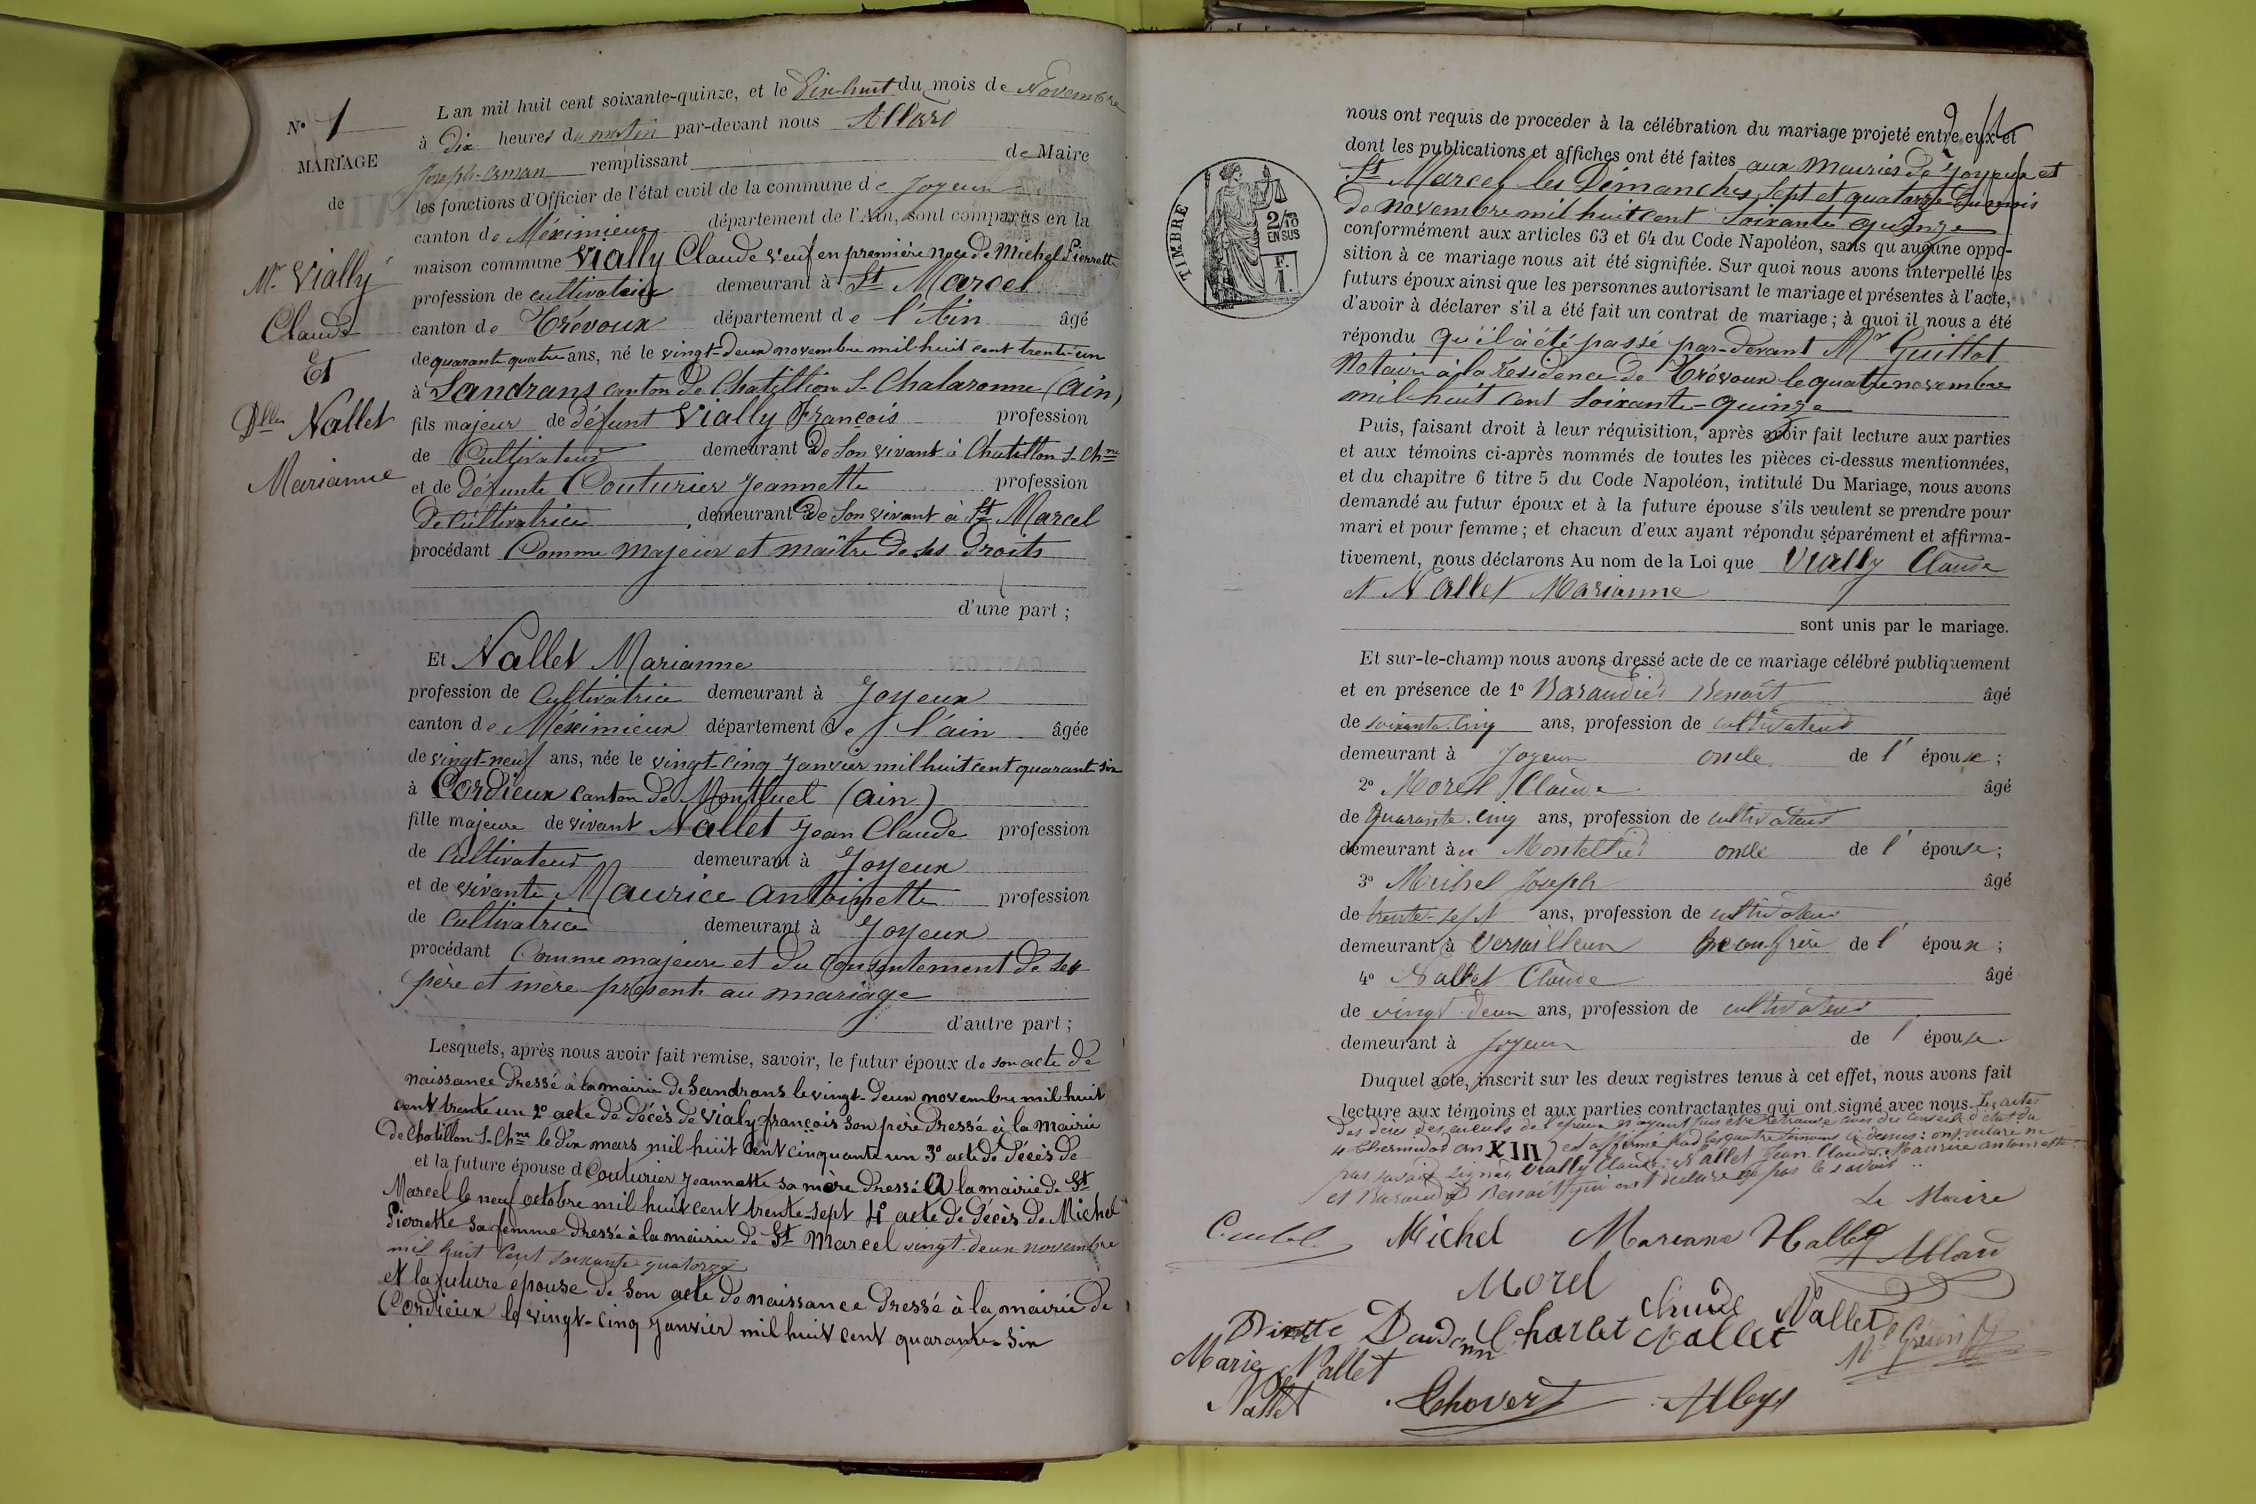 N° 1
MARIAGE
de
Mr Vially
Claude
Et
Dlle Nallet
Marianne
L'an mil huit cent soixante-quinze, et le Dix-huit du mois de Novembre
à Dix heures du matin par-devant nous Allard
Joseph remplissant de Maire
les fonctions d'Officier de l'état civil de la commune de Joyeux
canton de Méximieux département de l'Ain, sont comparus en la
maison commune Vially Claude veuf en première noce de Michel Pierrette
profession de cultivateur demeurant à St Marcel
canton de Trévoux département de l'Ain âgé
de quarante quatre ans, né le vingt-deux novembre mil huit cent trente-un
à Sandrans canton de Chatillion S- Chalaronne (Ain)
fils majeur de défunt Vially François profession
de Cultivateur demeurant de son vivant à Chatillon S- Chne
et de défunte Couturier Jeannette profession
De Cultivatrice demeurant de son vivant à St Marcel
procédant Comme majeur et maître de ses droits
d'une part ;
Et Nallet Marianne
profession de Cultivatrice demeurant à Joyeux
canton de Méximieux département de l'ain âgée
de vingt-neuf ans, née le vingt-cinq Janvier mil huit cent quarante six
à Cordieux canton de Montluel (ain)
fille majeure de vivant Nallet Jean Claude profession
de Cultivateur demeurant à Joyeux
et de vivante Maurice Antoinette profession
de Cultivatrice demeurant à Joyeux
procédant Comme majeure et du Consentement de ses
père et mère présents au mariage
d'autre part ;
Lesquels, après nous avoir fait remise, savoir, le futur époux de son acte de
naissance dressé à la mairie de Sandrans le vingt-deux novembre mil huit
cent trente un 2° acte de décès de Vialy françois son père dressé à la Mairie
de Chatillon S- Chne le dix mars mil huit Cent cinquante un 3° acte de décès de
et la future épouse d Couturier Jeannette sa mère dressé à la mairie de St
Marcel le neuf octobre mil huit cent trente-sept 4° acte de décès de Michel
Pierrette sa femme dressé à la mairie de St Marcel vingt-deux novembre
mil huit cent soixante quatorze
et la future epouse de son acte de naissance dressé à la mairie de
Cordieux le vingt-cinq Janvier mil huit cent quarante-six
nous ont requis de proceder à la célébration du mariage projeté entre eux et
dont les publications et affiches ont été faites aux mairies de Joyeux et
St Marcel les Dimanches sept et quatorze du mois
de novembre mil huit cent soixante quinze
conformément aux articles 63 et 64 du Code Napoléon, sans qu'aucune oppo-
sition à ce mariage nous ait été signifiée. Sur quoi nous avons interpellé les
futurs époux ainsi que les personnes autorisant le mariage et présentes à l'acte,
d'avoir à déclarer s'il a été fait un contrat de mariage ; à quoi il nous a été
répondu qu'il a été passé par-devant Mr Guillot
Notaire à la résidence de Trévoux le quatre novembre
mil huit cent soixante-quinze
TIMBRE
2/10
EN SUS
F.
1.
Puis, faisant droit à leur réquisition, après avoir fait lecture aux parties
et aux témoins ci-après nommés de toutes les pièces ci-dessus mentionnées,
et du chapitre 6 titre 5 du Code Napoléon, intitulé Du Mariage, nous avons
demandé au futur époux et à la future épouse s'ils veulent se prendre pour
mari et pour femme ; et chacun d'eux ayant répondu séparément et affirma-
tivement, nous déclarons Au nom de la Loi que Vially Claude
et Nallet Marianne
sont unis par le mariage.
Et sur-le-champ nous avons dressé acte de ce mariage célébré publiquement
et en présence de 1° Baraudier Benoît âgé
de soixante-cinq ans, profession de cultivateur
demeurant à Joyeux oncle de l' épouse ;
2° Morel Claude âgé
de Quarante-cinq ans, profession de cultivateur
demeurant au Montellier oncle de l' épouse ;
3° Michel Joseph âgé
de trente-sept ans, profession de cultivateur
demeurant à Versailleux beau-frère de l' époux ;
4° Nallet Claude âgé
de vingt deux ans, profession de cultivateur
demeurant à Joyeux de l' épouse
Duquel acte, inscrit sur les deux registres tenus à cet effet, nous avons fait
lecture aux témoins et aux parties contractantes qui ont signé avec nous. Les actes
des décès des aieuls de l'époux n'ayant pas être retrouvé avis du conseil d'état du
4 thermidor an XIII et affirmé par les quatre témoins ci dessus : ont déclaré ne
pas savoir signer Vially Claude Nallet Jean Claude Maurice antoinette
et Baraudier Benoît qui ont déclaré ne pas le savoir
Le Maire
Michel Mariane Nallet Allard
Morel
Claude Nallet
Charlet Nallet
Marie Nallet
Nallet Chovert